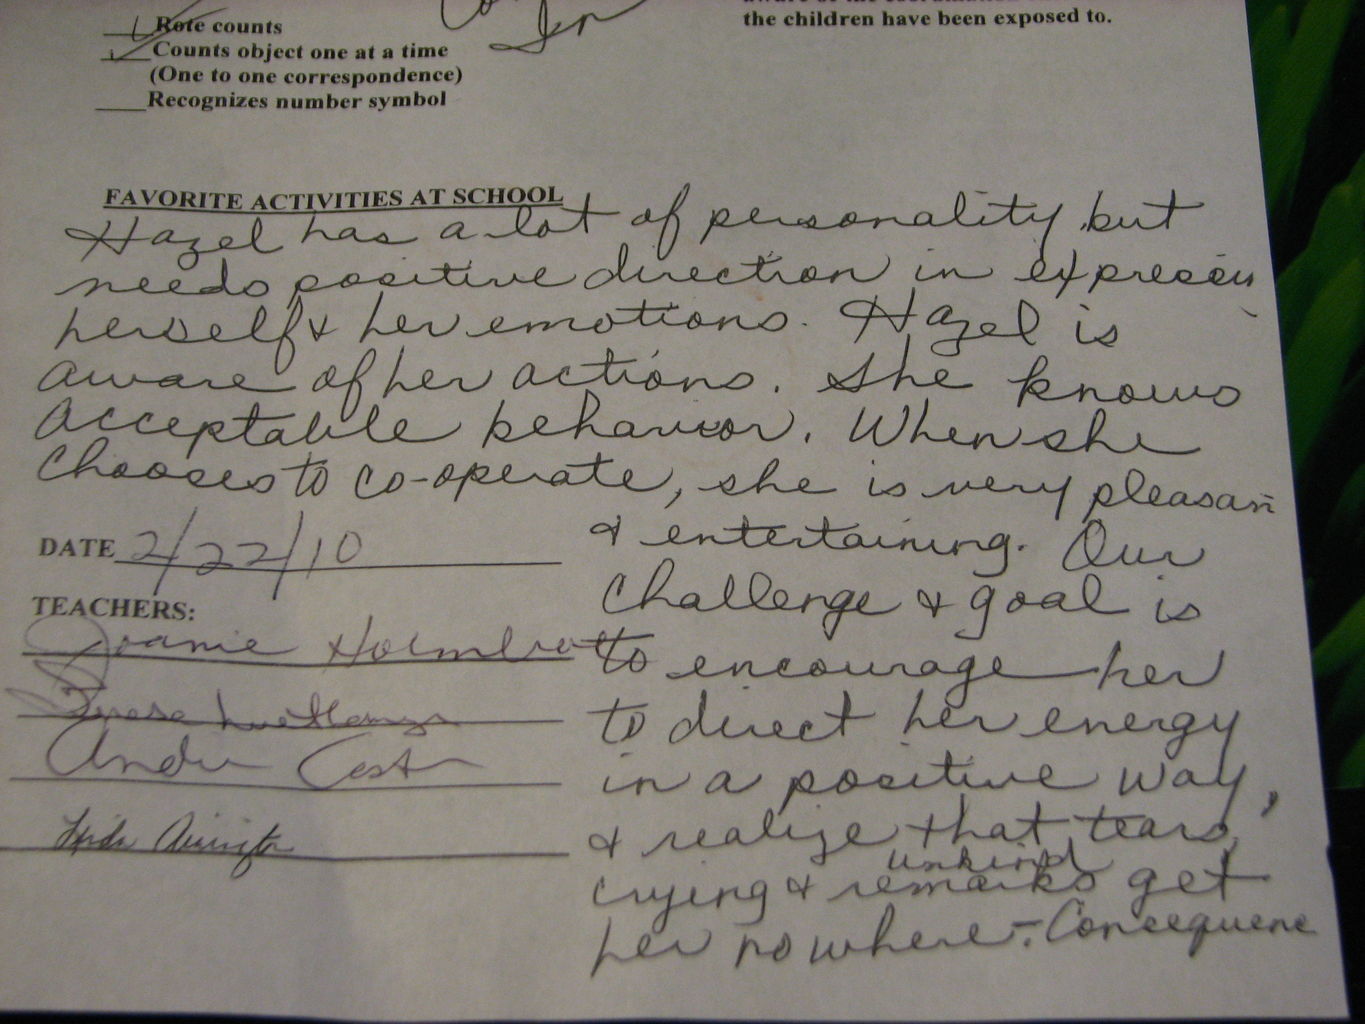 the children have been exposed to.
Rote counts
Counts object one at a time
(One to one correspondence)
Recognizes number symbol
FAVORITE ACTIVITIES AT SCHOOL
Hazel has a lot of personality, but
needs positive direction in
herself & her emotions. Hazel is
aware of her actions. She knows
acceptable behavior. When she
chooses to co-operate, she is very pleasan
& entertaining. Our
challenge & goal is
to encourage her
to direct her energy
in a positive way,
& realize that tears,
crying & unkind remarks get
her nowhere -
DATE 2/22/10
TEACHERS:
Joanie